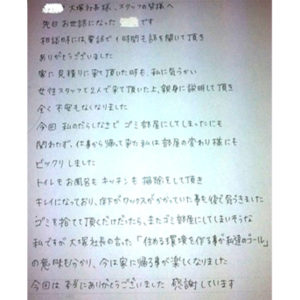 大塚社長様、スタッフの皆様へ
先日お世話になった です
初診の時には電話で1時間も話を聞いて頂き
ありがとうございました
家に見積りに来て頂いた時も、私に気づかい
女性スタッフと2人で来て頂いた上、親身に説明して頂き
全く不安もなくなりました
今回 私のだらしなさで ゴミ部屋にしてしまったにも
関わらず、仕事から帰って来た私は部屋の変わり様にも
ビックリしました
トイレもお風呂もキッチンも掃除をして頂き
キレイになっており、床下がワックスがかかっていた事も後で気づきました
ゴミを捨てて頂くだけだったら、またゴミ部屋にしてしまいそうな
私ですが大塚社長の言った「住める環境を作る事が私達のゴール」
の意味も分かり、今は家に帰る事が楽しくなりました
今回は 本当にありがとうございました 感謝しています